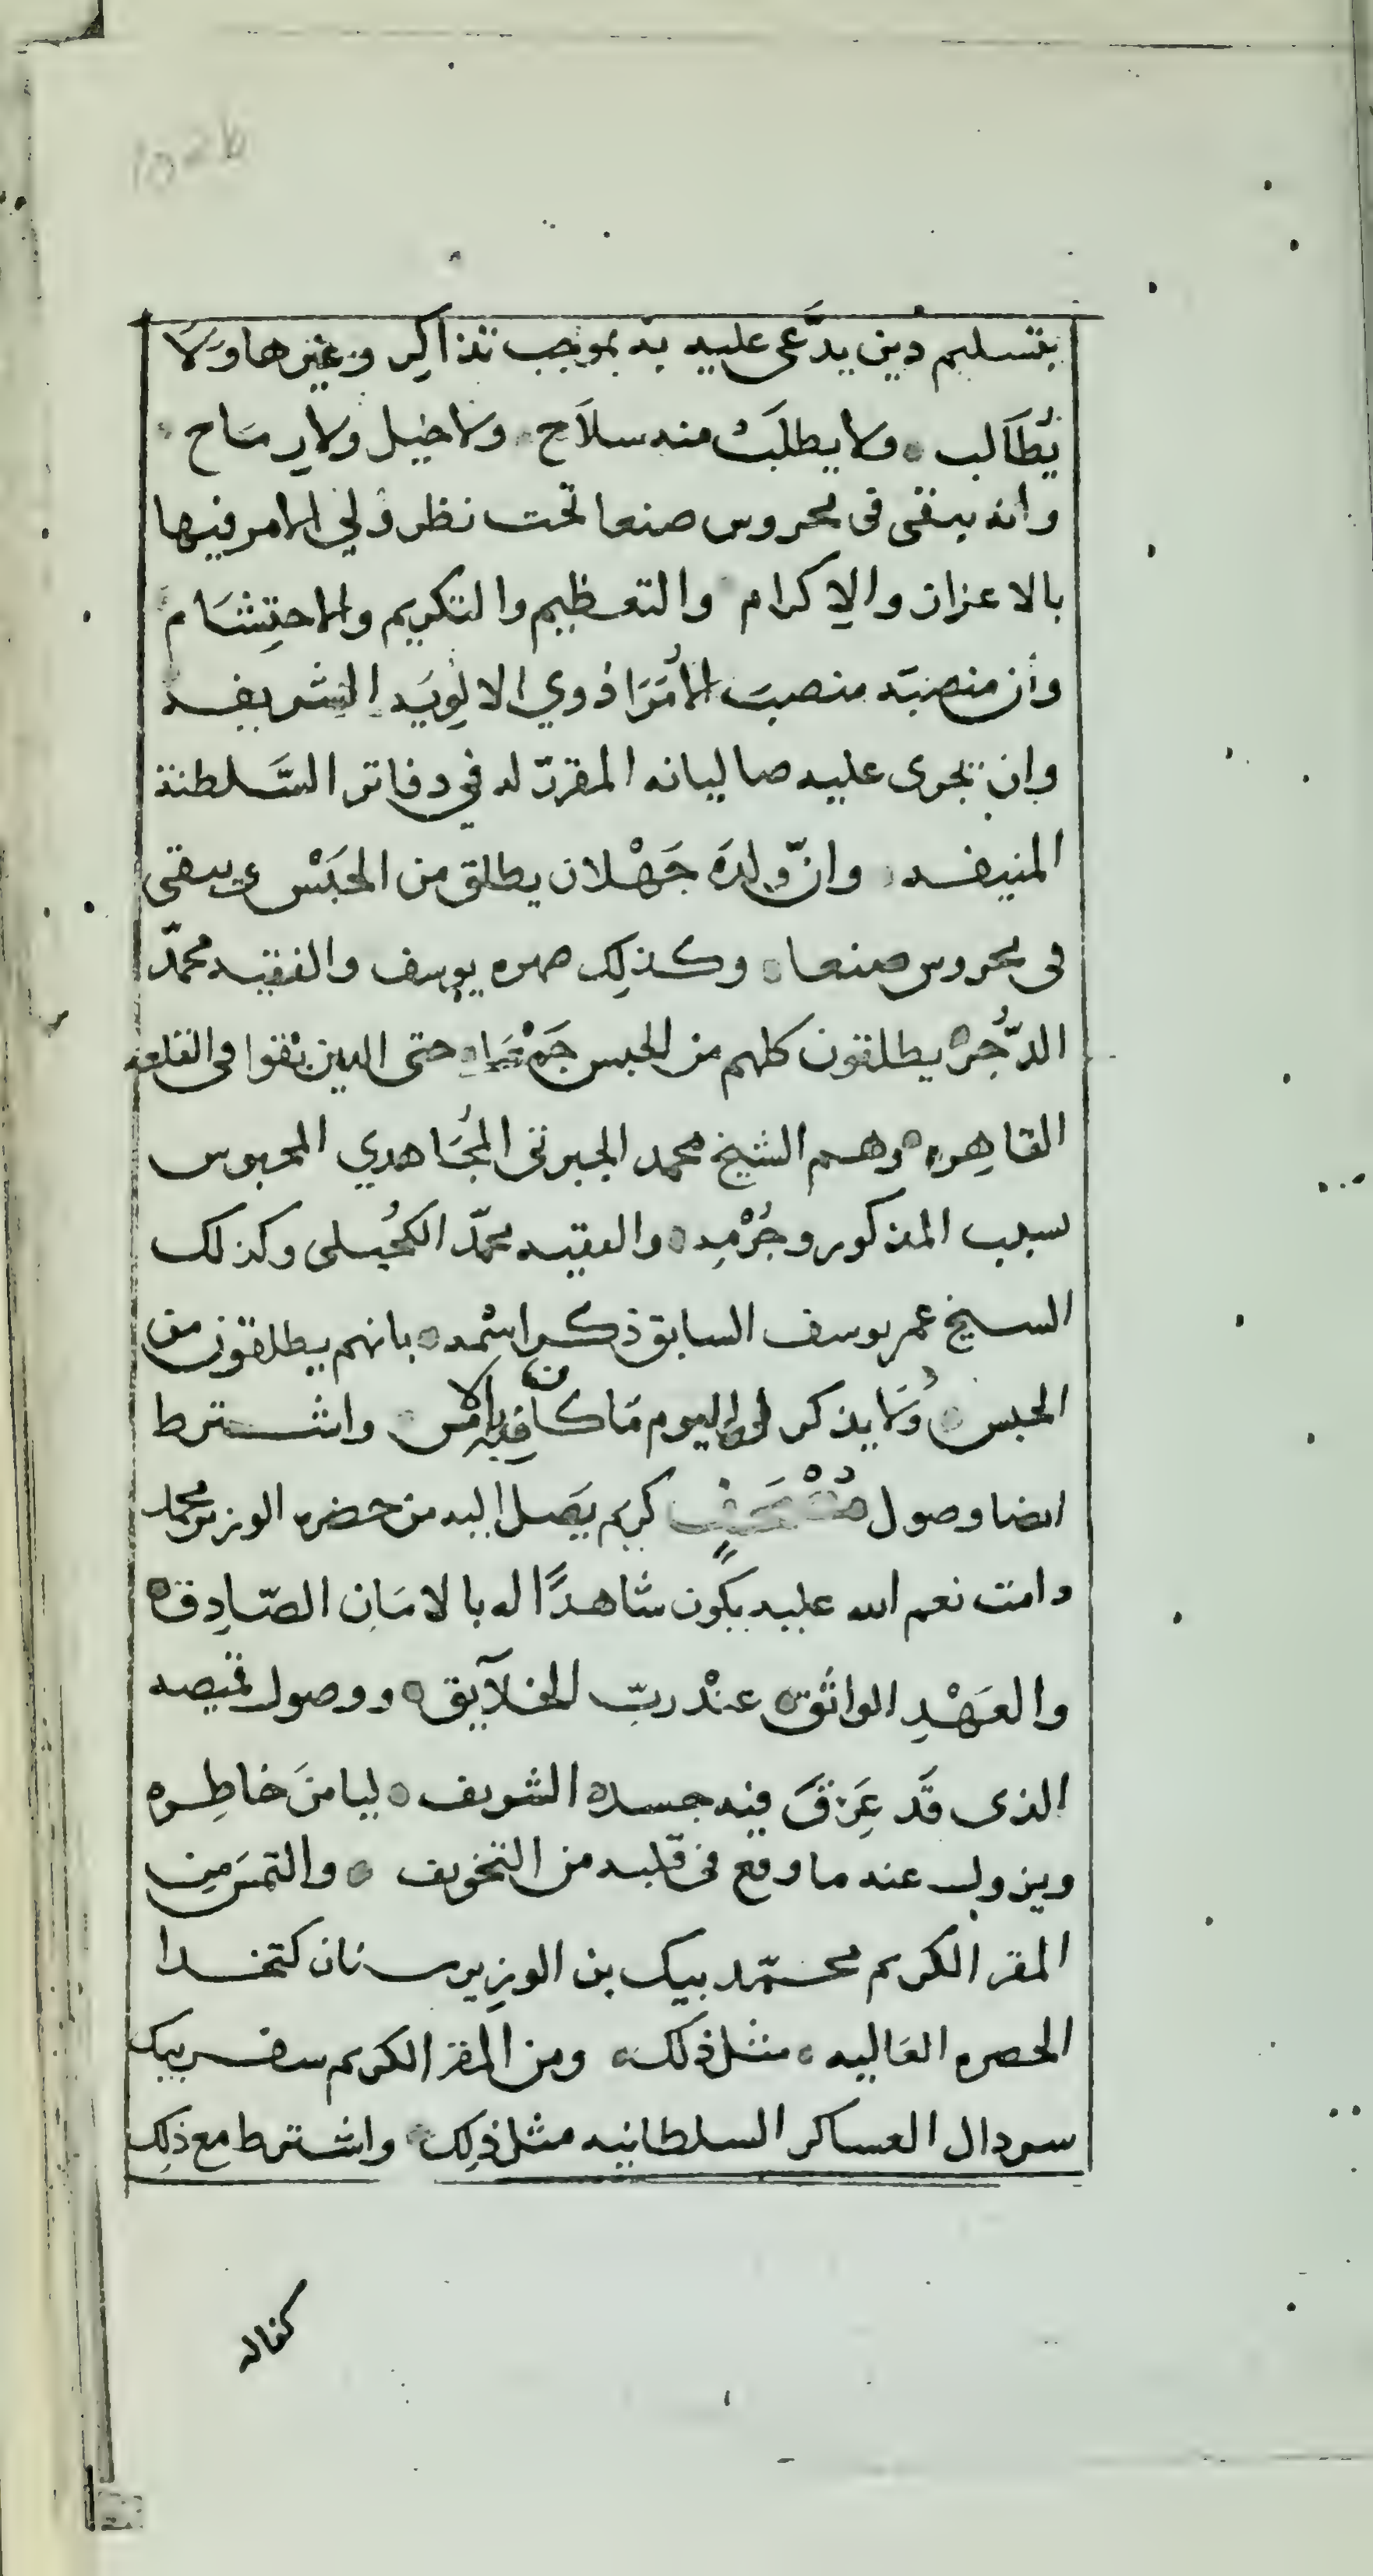 بتسليم دين يدّعى عليه به بموجب تذاكِر وغيرها ولا
يُطَالب ولا يطلَبُ منه سلاَح ولا خيل ولا رِماح
وانه يبقى فى محروس صنعا تحت نظر وَلي الامر فيها
بالاعزاز والاِكرام والتعظيم والتكريم والاحتِشَام
وأن منصبَه منصبَ الأمَرَا ذوي الالوِيَه الشريفه
وان يجرى عليه صاليانه المقررّ له في دفاتر السَّلطنة
المنيفه وانّ ولدَه جَهْلان يطلق من الحَبَسْ ويبقى
فى محروس صنعا وكذلِك صهره يوسف والفقيه محمدّ
الدّجُره يطلقون كلهم من الحبس جَمْعَا حتى الدين بقوا فى القلعه
القاهِره وهم الشيخ محمد الجبرتى المجُاهدي المحبوس
بسبب المذكور وجُرْمِه والفقيه محمدّ الكحُيلى وكذلك
السيخ عمر يوسف السابق ذكر اسْمه بانهم يطلقون من
الحبس وَلا يذكر اليوم مَا كان فيه بالامْس واشترط
ايضا وصول مُصْحَفٍ كريم يَصل اليه من حضره الوزير محمد
دامت نعم الله عليه يكون شاهدًا له بالامَانِ الصّادِق
والعَهْدِ الواثق عنْد ربّ الخلآيق ووصول قميصه
الذى قَد عَرِقَ فيه جسده الشريف ليامنَ خاطِره
ويزول عنه ما وقع فى قلبه من التخويف والتمسَ مِن
المقر الكريم محمّد بيك بن الوزِير سنان كتخدا
الحصره العَاليه مثل ذلك ومن المقر الكريم سفر بيك
سردال العساكر السلطانيه مثل ذلِك واشترط مع ذلِك